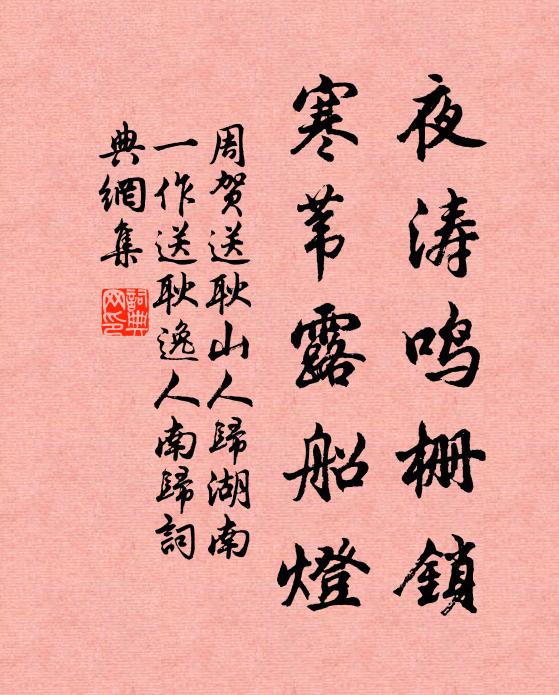 夜涛鸣栅鎖
寒苇露船燈
周贺送耿山人歸湖南
一作送耿逸人南歸詞
典網集
詞典网印